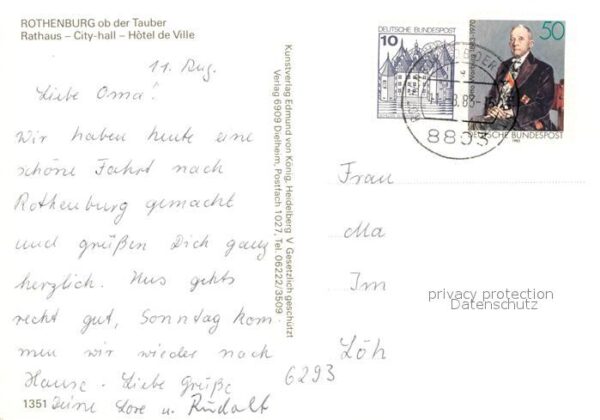 ROTHENBURG ob der Tauber
Rathaus – City-hall – Hôtel de Ville
11. Aug.
Liebe Oma!
Wir haben heute eine
schöne Fahrt nach
Rothenburg gemacht
und grüßen Dich ganz
herzlich. Uns gehts
recht gut, Sonntag kom-
men wir wieder nach
Hause. Liebe Grüße
1351 Deine Lore u. Rudolf
Kunstverlag Edmund von König, Heidelberg V Gesetzlich geschützt
Verlag 6909 Dielheim, Postfach 1027, Tel. 06222/3509
10
DEUTSCHE BUNDESPOST
50
DEUTSCHE BUNDESPOST
8.83
Frau
Ma
Im
Löh
6293
privacy protection
Datenschutz